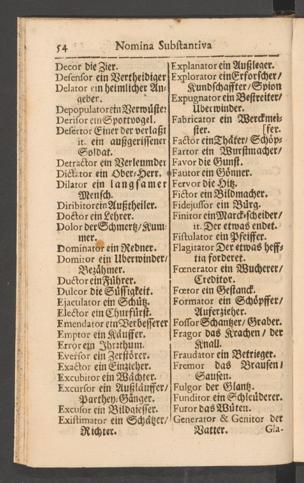 54 Nomina Substantiva
Decor die Zier.
Defensor ein Vertheidiger
Delator ein heimlicher An-
geber.
Depopulator ein Verwüster
Derisor ein Sportvogel.
Desertor Einer der verlaßt
it. ein außgerissener
Soldat.
Detractor ein Verleumder
Dictator ein Ober-Herr.
Dilator ein langsamer
Mensch.
Diribitor ein Außtheiler.
Doctor ein Lehrer.
Dolor der Schmertz/Kum-
mer.
Dominator ein Redner.
Domitor ein Uberwinder/
Bezähmer.
Ductor ein Führer.
Dulcor die Süssigkeit.
Ejaculator ein Schütz.
Elector ein Churfürst.
Emendator ein Verbesserer
Emptor ein Käuffer.
Error ein Irrthum.
Eversor ein Zerstörer.
Exactor ein Einzieher.
Excubitor ein Wächter.
Excursor ein Außläuffer/
Parthey-Gänger.
Excusor ein Bildgiesser.
Existimator ein Schätzer/
Richter.
Explanator ein Außleger.
Explorator ein Erforscher/
Kundschaffter/Spion
Expugnator ein Bestreiter/
Uberwinder.
Fabricator ein Werckmei-
ster. ffer.
Factor ein Thäter/Schöp-
Fartor ein Wurstmacher/
Favor die Gunst.
Fautor ein Gönner.
Fervor die Hitz.
Fictor ein Bildmacher.
Fidejussor ein Bürg.
Finitor ein Marckscheider/
it. Der etwas endet.
Fistulator ein Pfeiffer.
Flagitator Der etwas heff-
tig forderet.
Fœnerator ein Wucherer/
Creditor.
Fœtor der Gestanck.
Formator ein Schöpffer/
Auferzieher.
Fossor Schantzer/Graber.
Fragor das Krachen/der
Knall.
Fraudator ein Betrieger.
Fremor das Brausen/
Sausen.
Fulgor der Glantz.
Funditor ein Schleüderer.
Furor das Wüten.
Generator & Genitor der
Vatter. Gla-